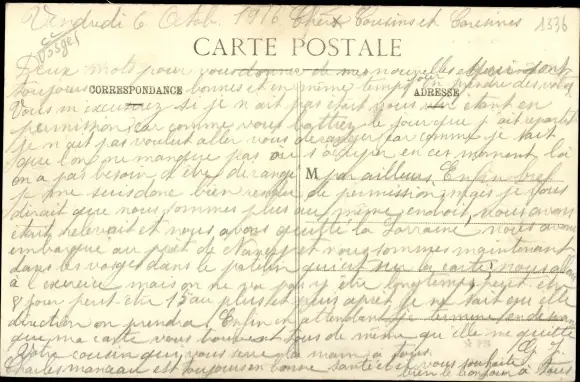 Vendredi 6 Octob. 1916 Chers Cousins et Cousines
1336
Vosges
CARTE POSTALE
Deux mots pour vous donner de mes nouvelles qui sont
toujours bonnes et en même temps pour prendre des vôtres
CORRESPONDANCE
ADRESSE
Vous m'excuserez si je n'ait pas etait vous voir etant en
permission car comme vous battiez le jour que j'ait reparti
je n'ait pas voulut aller vous deranger car comme je sait
que l'on ne manque pas ou s'ocuper en ces moment la
on a pas besoin d'etre deranger
M
par ailleurs. Enfin bref
je me suis donc bien rendu de permission mais je vous
dirait que nous sommes plus au même endroit, nous avons
etait relevait et nous avons quitté la Lorraine nous avons
embarqué au port de Nancy et nous sommes maintenant
dans les vosges dans le patelin qui est sur la carte nous allons
à l'exercice mais on ne va pas y être longtemps peut etre
8 jour peut-etre 15 au plus et puis apret je ne sait qu'elle
direction on prendra. Enfin en attendant je termine en desirant
que ma carte vous trouve tous de même qu'elle me quitte
Votre cousin qui vous serre la main à tous.
Charles manceau est toujours en bonne santé et vous souhaite
bien le bonjour à tous